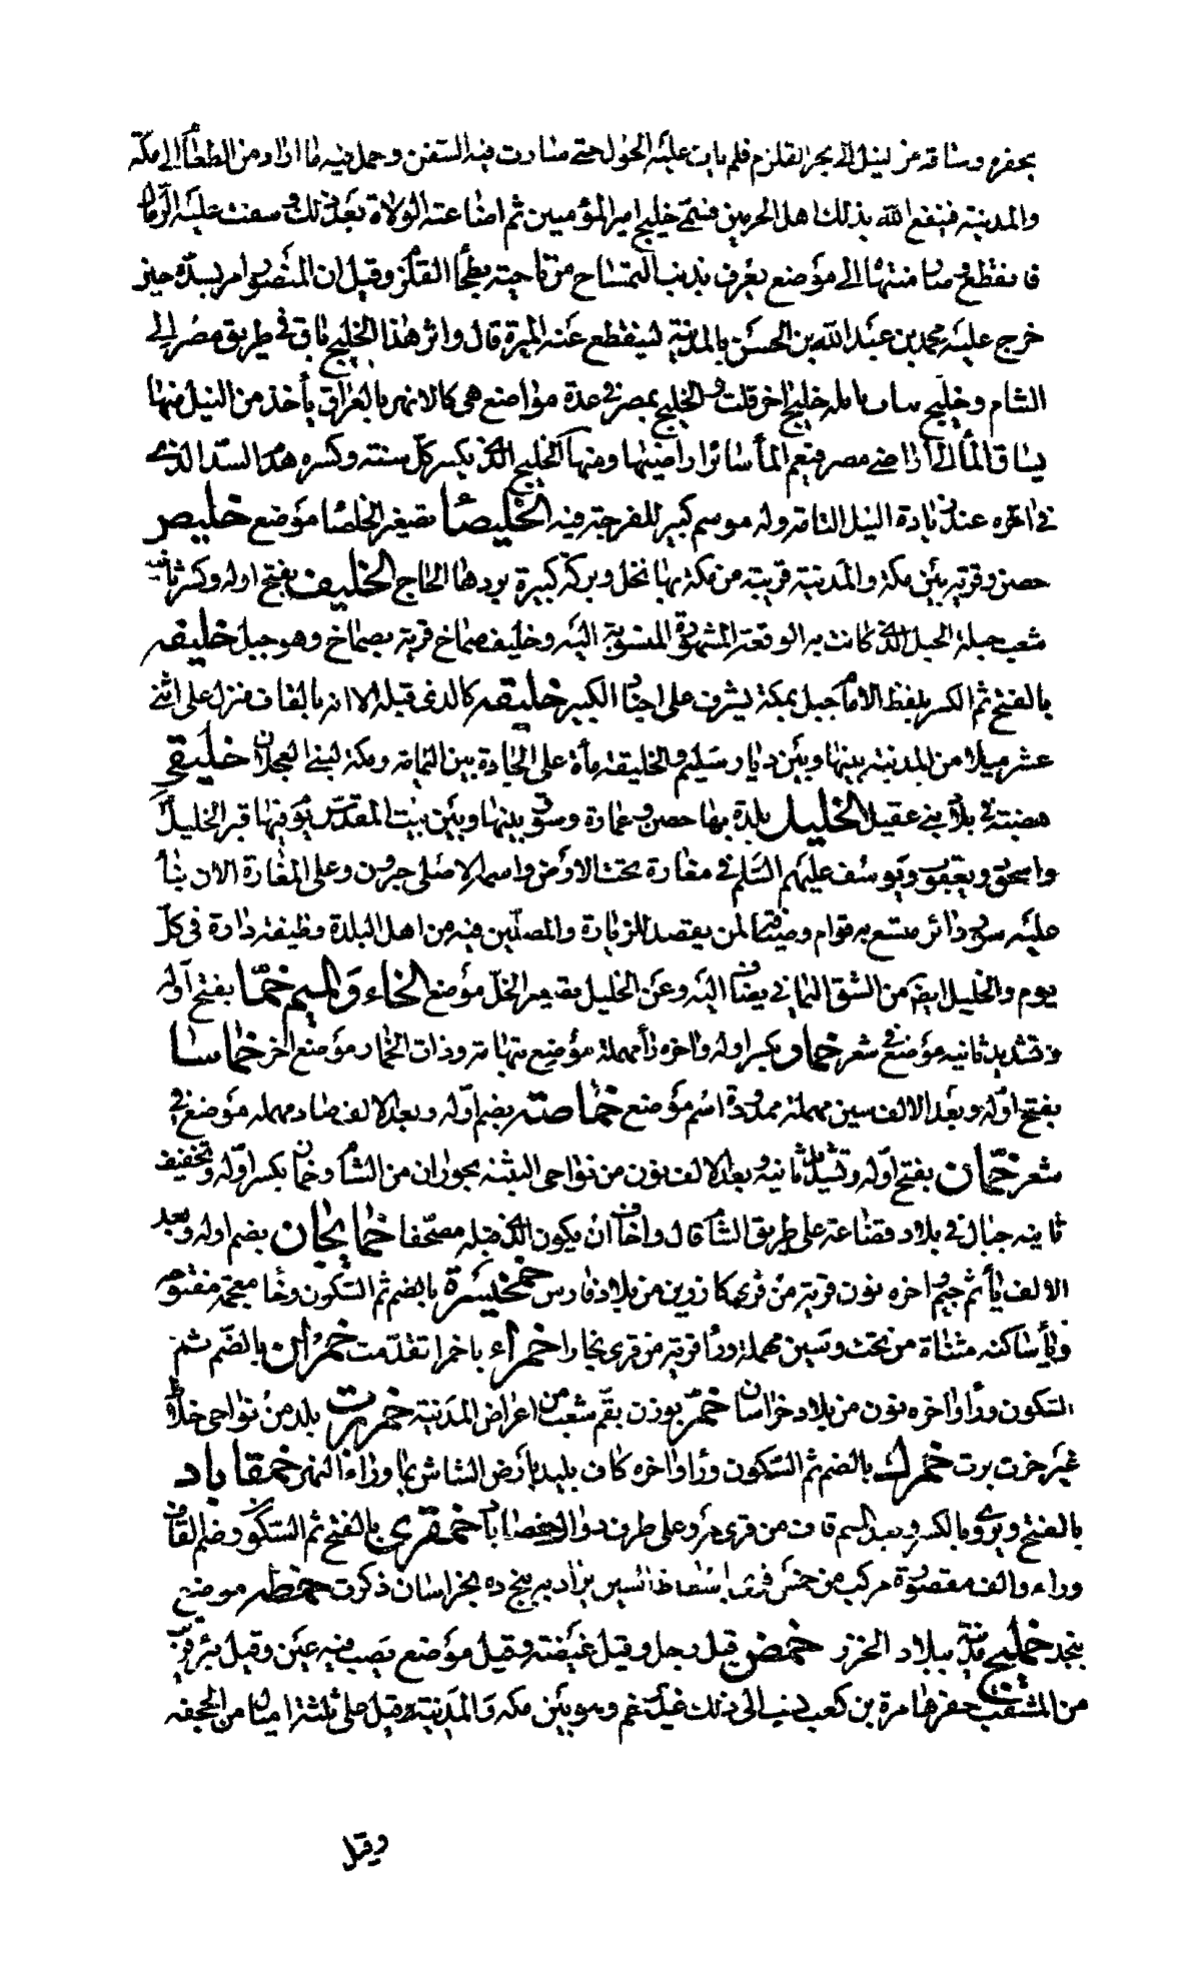 بحفره وساقه من النيل الى بحر القلزم فلم يات عليه الحول حتى سارت فيه السفن وحمل فيه ما اراد من الطعام الى مكة
والمدينة فنفع الله بذلك اهل الحرمين فسمى خليج امير المؤمنين ثم اضاعته الولاة بعد ذلك وسفت عليه الرمال
فانقطع وصار منتهاه الى موضع يعرف بذنب التمساح من ناحية بطحا القلزم وقيل ان المنصور امر بسده حين
خرج عليه محمد بن عبد الله بن الحسن بالمدينة لينقطع عنه الميرة قال واثر هذا الخليج باق فى طريق مصر الى
الشام وخليج خليج اخر قلت والخليج بمصر فى عدة مواضع هى كالانهر بالعراق يأخذ من النيل منها
يساق المأ الى اراضى مصر فيعم المأ سائر اراضيها ومنها الخليج الذى يكسر كل سنة وكسره هذا السد الذى
فى اخره عند زيادة النيل التامة وله موسم كبير للفرجة فيه الخليصا تصغير الخلصا موضع خليص
حصن وقرية بين مكة والمدينة قريبة من مكة بها نخل وبركة كبيرة يردها الحاج الخليف بفتح اوله وكسر ثانيه
شعب جبلة الجبل الذى كانت به الوقعة المشهورة المنسوبة اليه وخليف صماخ قرية بصماخ وهو جبل خليفه
بالفتح ثم الكسر بلفظ الامام جبل بمكة يشرف على اجياد الكبير خليقه كالذى قبله الا انه بالقاف منزل على اثنى
عشر ميلا من المدينة بينها وبين ديار سليم والخليقة مأة على الجادة بين اليمامة ومكة لبنى العجلان خليقى
هضبة فى بلاد بنى عقيل الخليل بلدة بها حصن وعمارة وسوق بينها وبين بيت المقدس يوم فيها قبر الخليل
واسحق ويعقوب ويوسف عليهم السلام فى مغارة تحت الارض واسمه الاصلى جرون وعلى المغارة الان بنأ
عليه سور دائر متسع به قوام وضيافة لمن يقصد للزيارة والمصلين فيه من اهل البلدة وظيفة دارة فى كل
يوم والخليل ايضا من الشق اليمانى يضاف اليه وعن الخليل تصغير الخل موضع الخاء والميم خمّا بفتح اوله
وتشديد ثانيه موضع فى شعر خمار بكسر اوله واخره رأ مهملة موضع بتهامة وذات الخمار موضع اخر خماسا
بفتح اوله وبعد الالف سين مهملة ممدودة اسم موضع خماصة بضم اوله وبعد الالف صاد مهمله موضع فى
شعر خمّان بفتح اوله وتشديد ثانيه وبعد الالف نون من نواحى البثنه بحوران من الشأم وخمان بكسر اوله وتخفيف
ثانيه جبال فى بلاد قضاعة على طريق الشأم قال واخاف ان يكون الذى قبله مصحفا خمايجان بضم اوله وبعد
الالف يأ ثم جيم اخره نون قرية من قرى كازرون من بلاد فارس خمخيسرة بالضم ثم السكون وخا معجمة مفتوحه
ويأ ساكنه مثناة من تحت وسين مهملة ورأ قرية من قرى بخارا خمراء باخمرا تقدمت خمران بالضم ثم
السكون ورأ واخره نون من بلاد خراسان خمّر بوزن بقّم شعب من اعراض المدينة خمربرت بلد من نواحى خلاط
غير خرت برت خمرك بالضم ثم السكون ورأ واخره كاف بليد بارض الشاش بما وراء النهر خمقاباد
بالفتح ويروى بالكسر وبعد الميم قاف من قرى مرو على طرف خمقرى بالفتح ثم السكون وضم القاف
وراء والف مقصورة مركب من خمس قرى باسقاط السين يراد به پنج ده بخراسان ذكرت خمطه موضع
بنجد خمليج مدينة ببلاد الخزر خمض قيل رجل وقيل غيضة وقيل موضع يصب فيه عين وقيل بئر قرب
من المشقب حفرها مرة بن كعب نسب الى ذلك غدير خم وهو بين مكه والمدينة وقيل على ثلثة اميال من الجحفه
وقيل